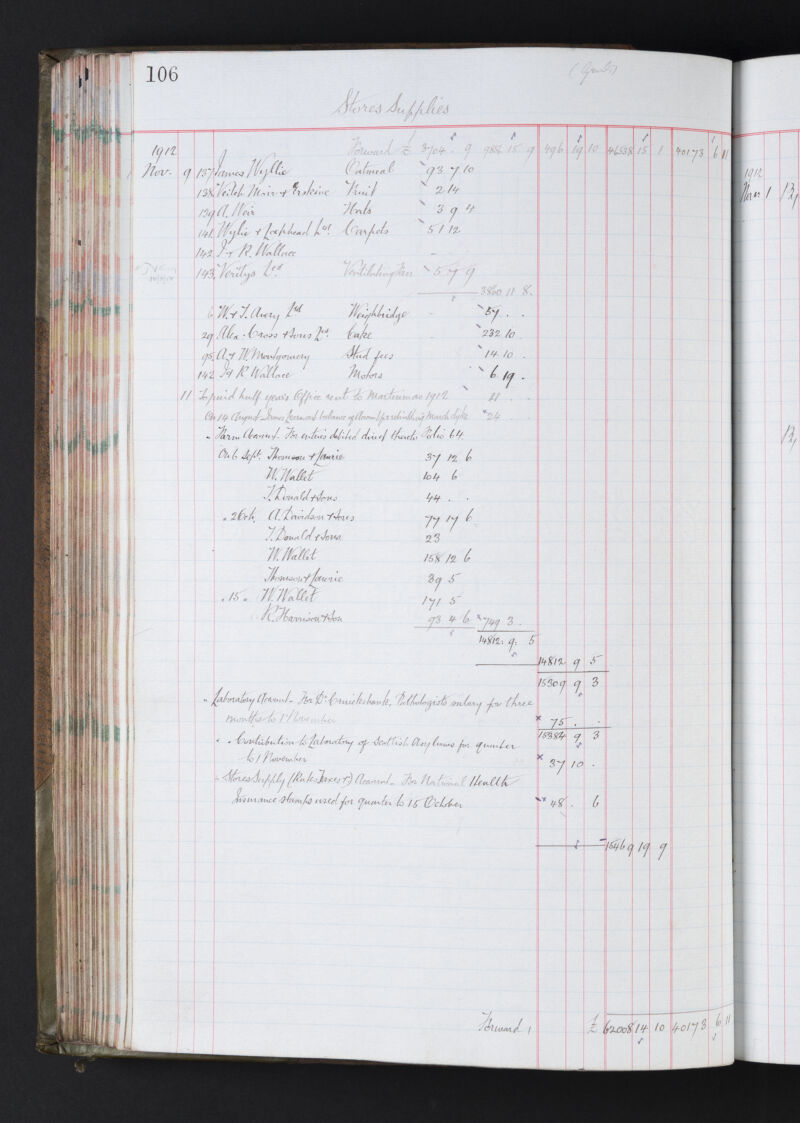 106
Stores Supplies
1912 Forward £ 3704 . 9 9 15 9 496 19 10 46538 15 1 40173 6 11
Nov. 9 137 James Wyllie Oatmeal 93 7 10
138 Veitch Moir & Erskine Fruit 2 14
139 A. Weir 3 9 4
141 Wylie & Lochhead Ltd. Carpets 51 12
142 J & R. Wallace
143 Veritys Ltd Ventilating Fan 5 7 9
3860 11 8
6 W. & T. Avery Ltd Weighbridge 57 . .
29 Alex. Cross & Sons Ltd. Cake 232 10 .
95 A & W Montgomery Stud fees 14 10 .
142 J & R Wallace Motors 6 19 .
11 To paid half years Office rent to Martinmas 1912 11 . .
On 14 August 24 . .
" Farm Account. For entries debited direct thereto Folio 64
On 6 Sept. Thomson & Laurie 37 12 6
W. Wallet 104 6
J. Donald & Sons 44 . .
" 2 Oct. A. Davidson & Sons 77 17 6
J. Donald & Sons 23
W. Wallet 158 12 6
Thomson & Laurie 39 5
" 15 " W. Wallet 171 5
R. Harrison & Son 93 4 6 749 3 .
14812 : 9 : 5
14812 9 5
15309 9 3
" Laboratory Account. For Dr Cruickshank, Pathologists salary for three
months to 1 November 75 . .
15384 9 3
" " Contribution to Laboratory of Scottish Asylums for quarter
to 1 November 37 10 .
" Stores Supply (Rates Taxes &c) Account. For National Health
Insurance stamps used for quarter to 15 October 48 . 6
15469 19 9
Forward £ 62008 14 10 40173 6 11
1912